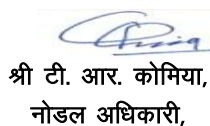 श्री टी. आर. कोमिया,
नोडल अधिकारी,